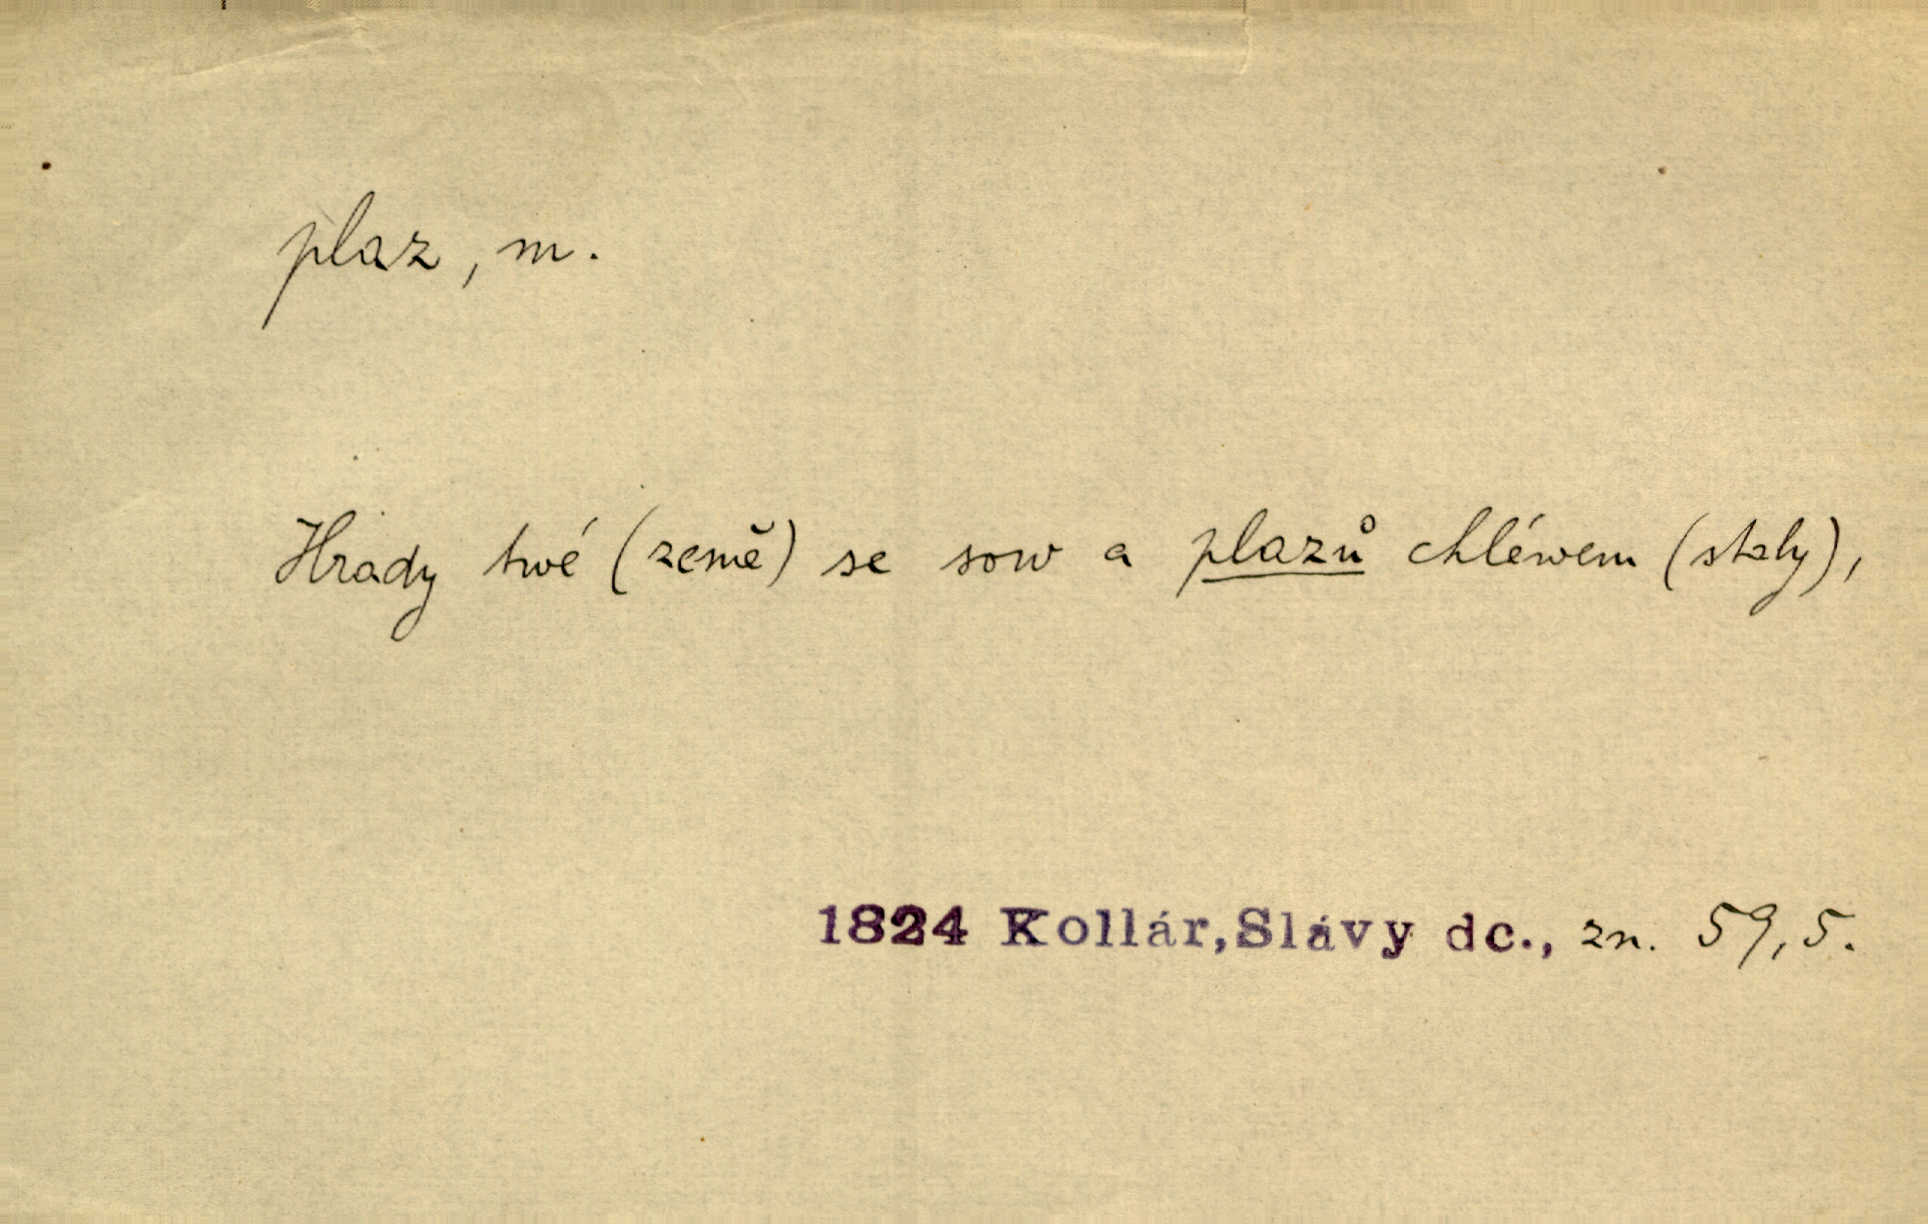 plaz, m.
Hrady twé (země) se sow a plazů chléwem (staly),
1824 Kollár, Slávy dc., zn. 59,5.